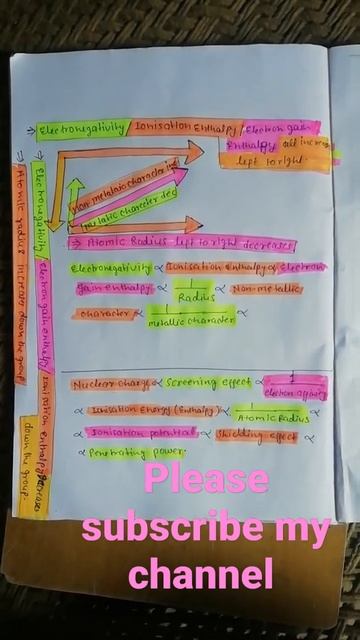 ⇒ Electronegativity / Ionisation Enthalpy / Electron gain
Enthalpy all increases
left to right
Non metallic character inc
metallic character dec
⇒ Atomic Radius left to right decreases
⇒ Atomic radius increases down the group
Electronegativity / Electron gain enthalpy / Ionisation enthalpy decreases
down the group.
Electronegativity ∝ Ionisation Enthalpy ∝ Electron
gain enthalpy ∝ 1/Radius ∝ Non-metallic
character ∝ 1/metallic character ∝
Nuclear charge ∝ Screening effect ∝ 1/electron affinity
∝ Ionisation Energy (Enthalpy) ∝ 1/Atomic Radius
∝ Ionisation potential ∝ Shielding effect ∝
∝ Penetrating power.
Please
subscribe my
channel